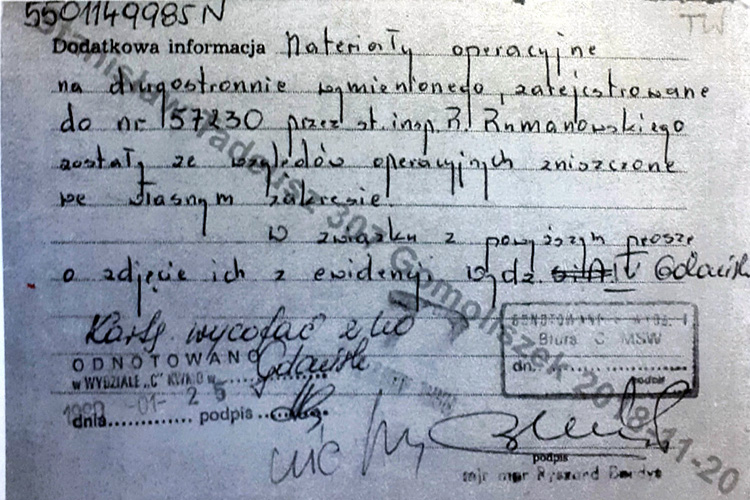 5501149985N
TW
Dodatkowa informacja Materiały operacyjne
na drugostronnie wymienionego, zarejestrowane
do nr 57230 przez st. insp. R. Rumanowskiego
zostały ze względów operacyjnych zniszczone
we własnym zakresie.
W związku z powyższym proszę
o zdjęcie ich z ewidencji Wydz. IV Gdańsk
Kartę wycofać z
ODNOTOWANO
w WYDZIALE „C" Gdańsk
Biura C MSW
dn.
podpis
-01- 25
dnia podpis
podpis
mjr mgr Ryszard
Stanisław Tadeusz 303 Gomoliszek 2018-11-20